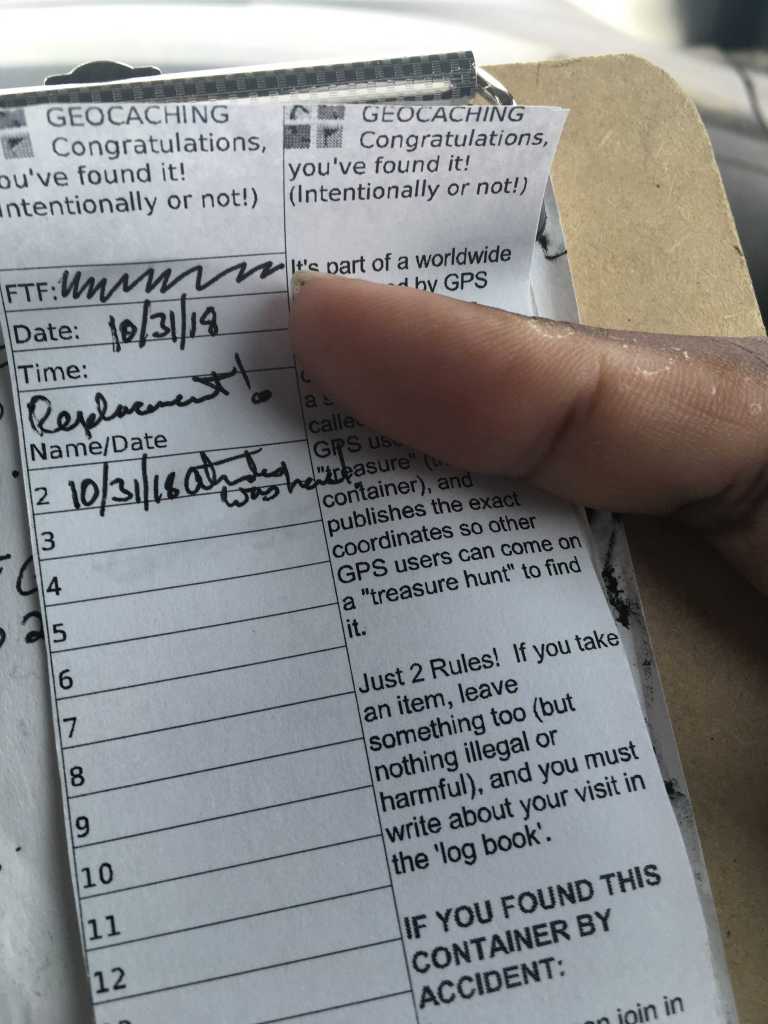 GEOCACHING
Congratulations,
ou've found it!
Intentionally or not!)
FTF:
Date: 10/31/18
Time:
Replacement!
Name/Date
2 10/31/18
was here!
3
4
5
6
7
8
9
10
11
12
GEOCACHING
Congratulations,
you've found it!
(Intentionally or not!)
It's part of a worldwide
by GPS
a
calle
GPS us
"treasure"
container), and
publishes the exact
coordinates so other
GPS users can come on
a "treasure hunt" to find
it.
Just 2 Rules! If you take
an item, leave
something too (but
nothing illegal or
harmful), and you must
write about your visit in
the 'log book'.
IF YOU FOUND THIS
CONTAINER BY
ACCIDENT:
join in